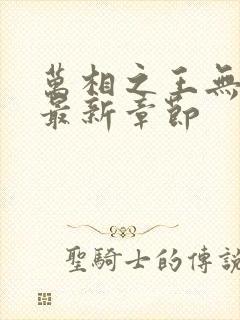 萬相之王無
最新章節
聖騎士的傳說